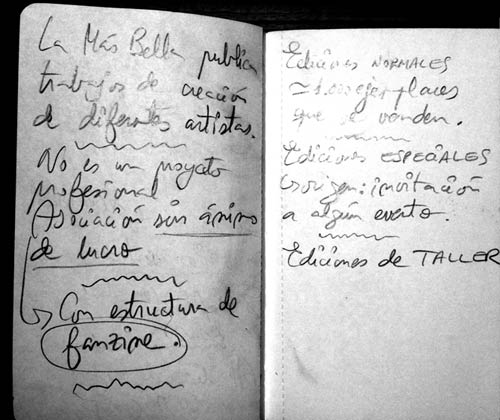 La Más Bella publica
trabajos de creación
de diferentes artistas.
No es un proyecto
profesional
Asociación sin ánimo
de lucro
Con estructura de
fanzine.
Ediciones NORMALES
≃ 1.000 ejemplares
que se venden.
Ediciones ESPECIALES
origen: invitación
a algún evento.
Ediciones de TALLER